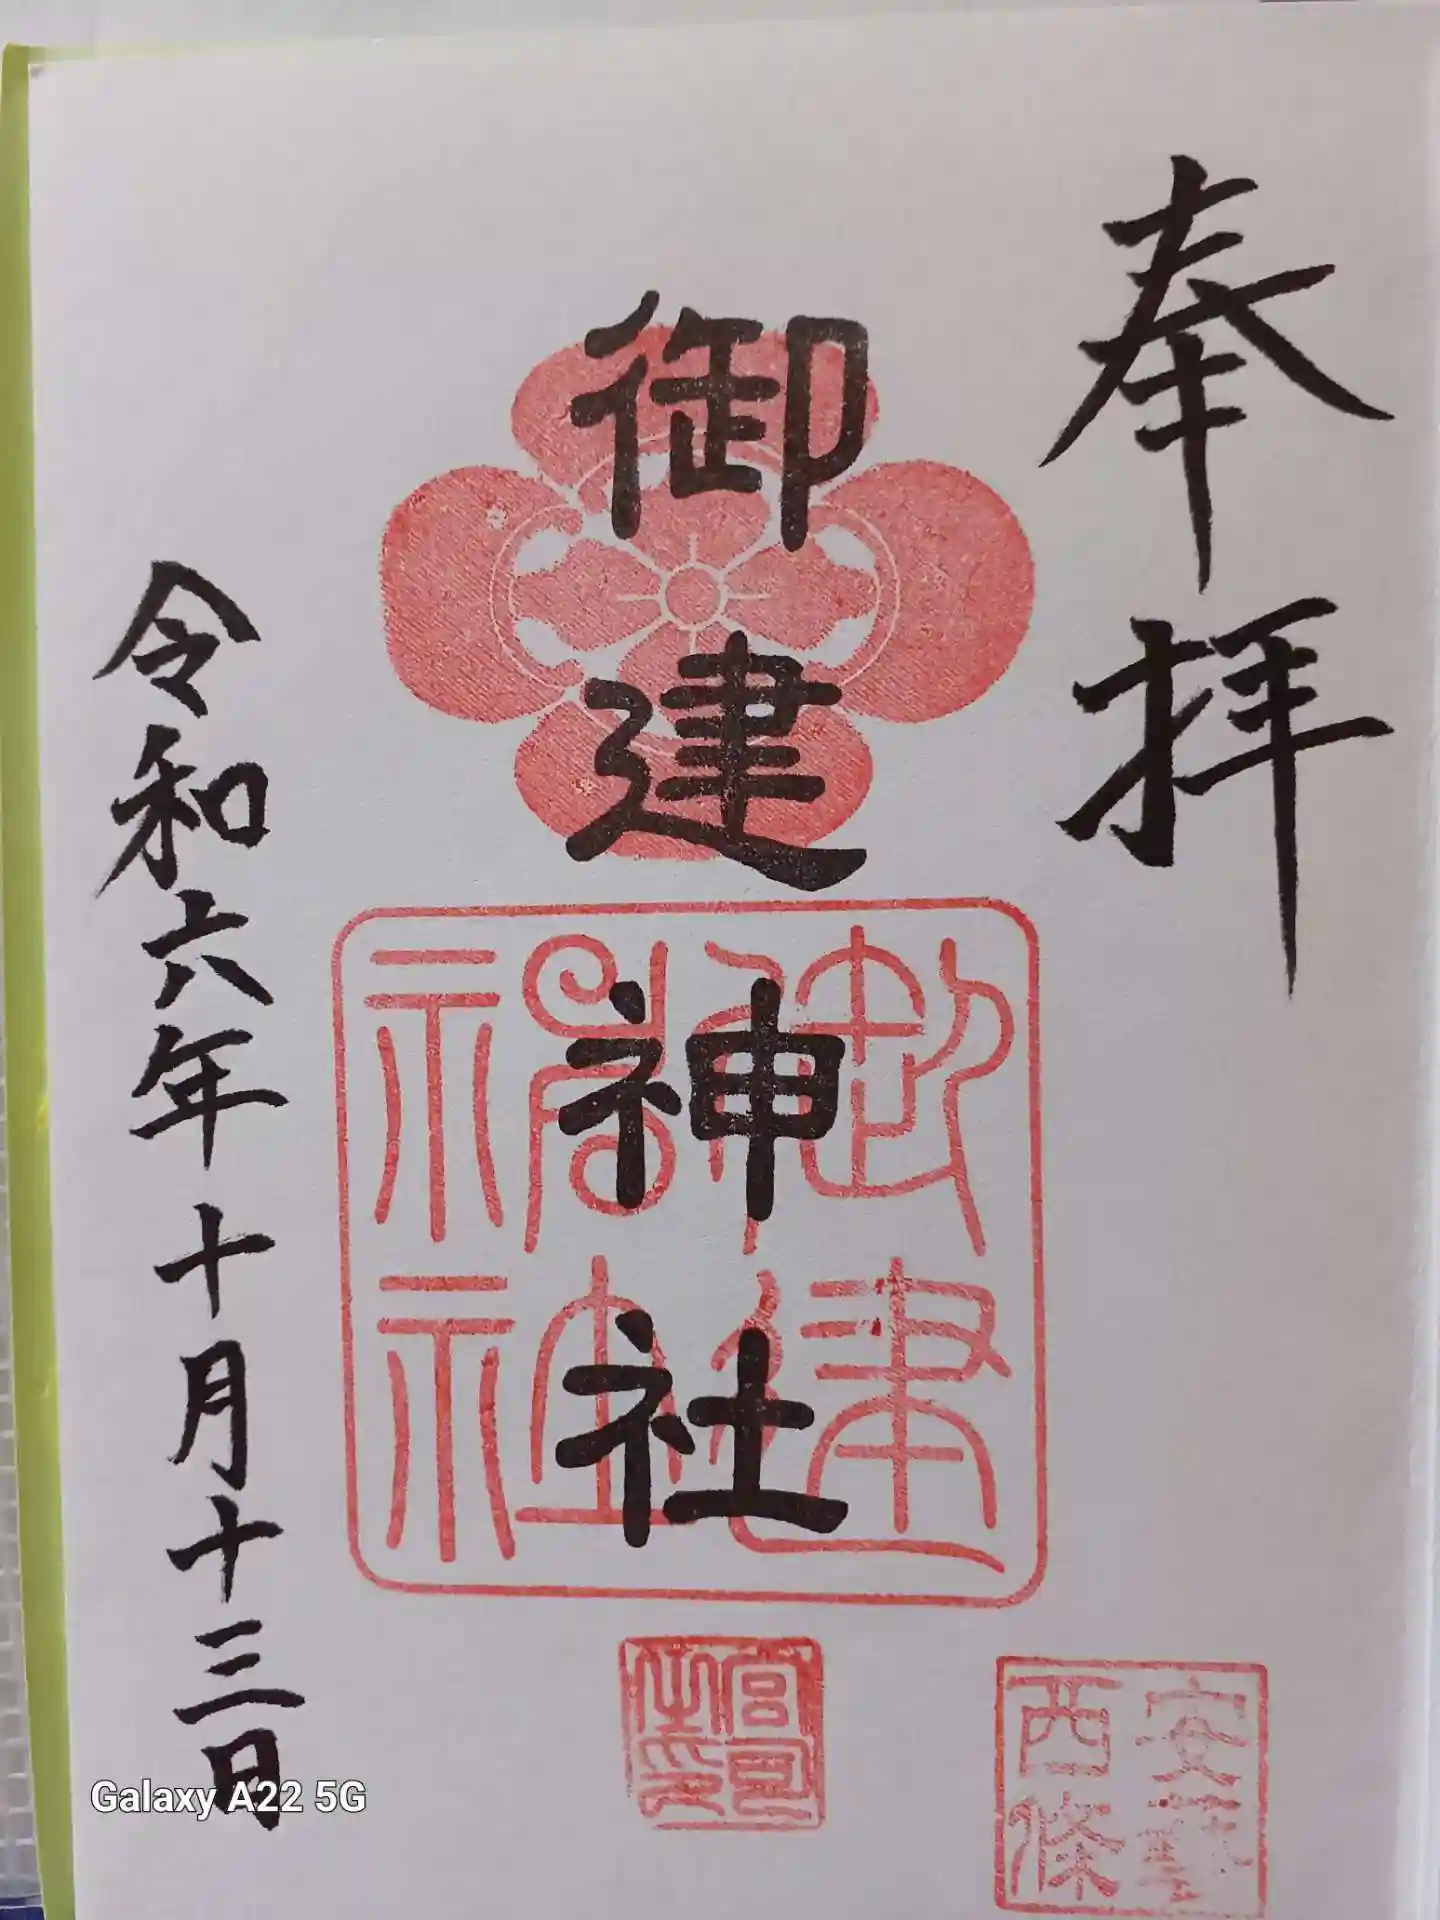 奉拝
御建神社
御建神社
宮司之印
安藝西條
令和六年十月十三日
Galaxy A22 5G